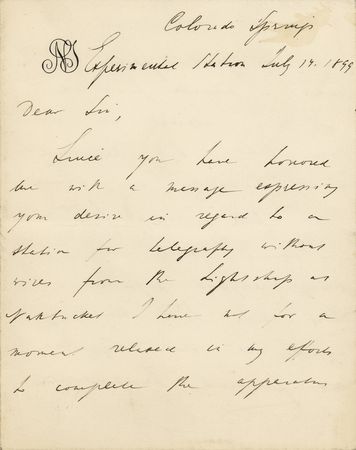 Colorado Springs
Experimental Station July 14. 1899
Dear Sir,
Since you have honored
me with a message expressing
your desire in regard to a
station for telegraphy without
wires from the Lightship at
Nantucket I have not for a
moment relaxed in my efforts
to complete the apparatus